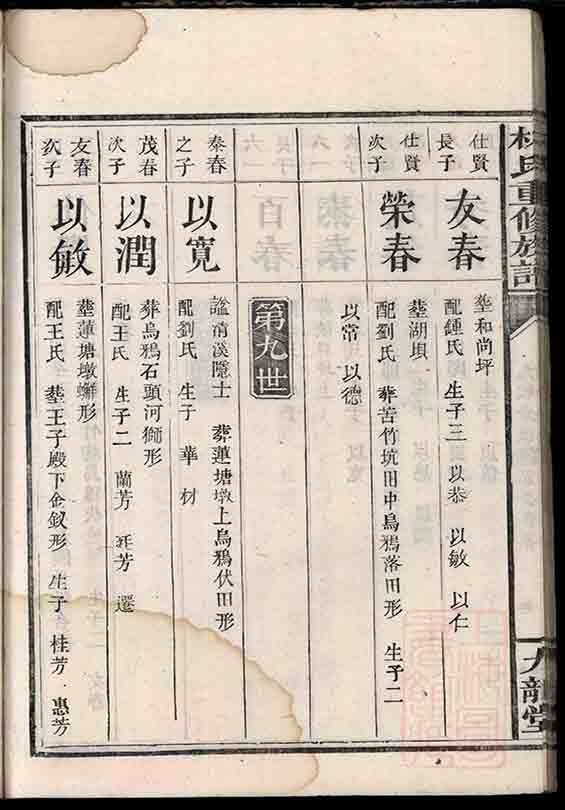 林氏重修族譜
九龍堂
仕賢
長子
友春
塟和尚坪
配鍾氏 生子三 以恭 以敏 以仁
仕賢
次子
榮春
塟湖埧
配劉氏 葬苦竹坑田中烏鴉落田形 生子二
以常 以德
第九世
秦春
之子
以寬
諡清溪隱士 葬蓮塘墩上烏鴉伏田形
配劉氏 生子 華材
茂春
次子
以潤
葬烏鴉石頭河獅形
配王氏 生子二 蘭芳 廷芳 遷
友春
次子
以敏
塟蓮塘墩蠏形
配王氏 塟王子殿下金釵形 生子 桂芳 惠芳